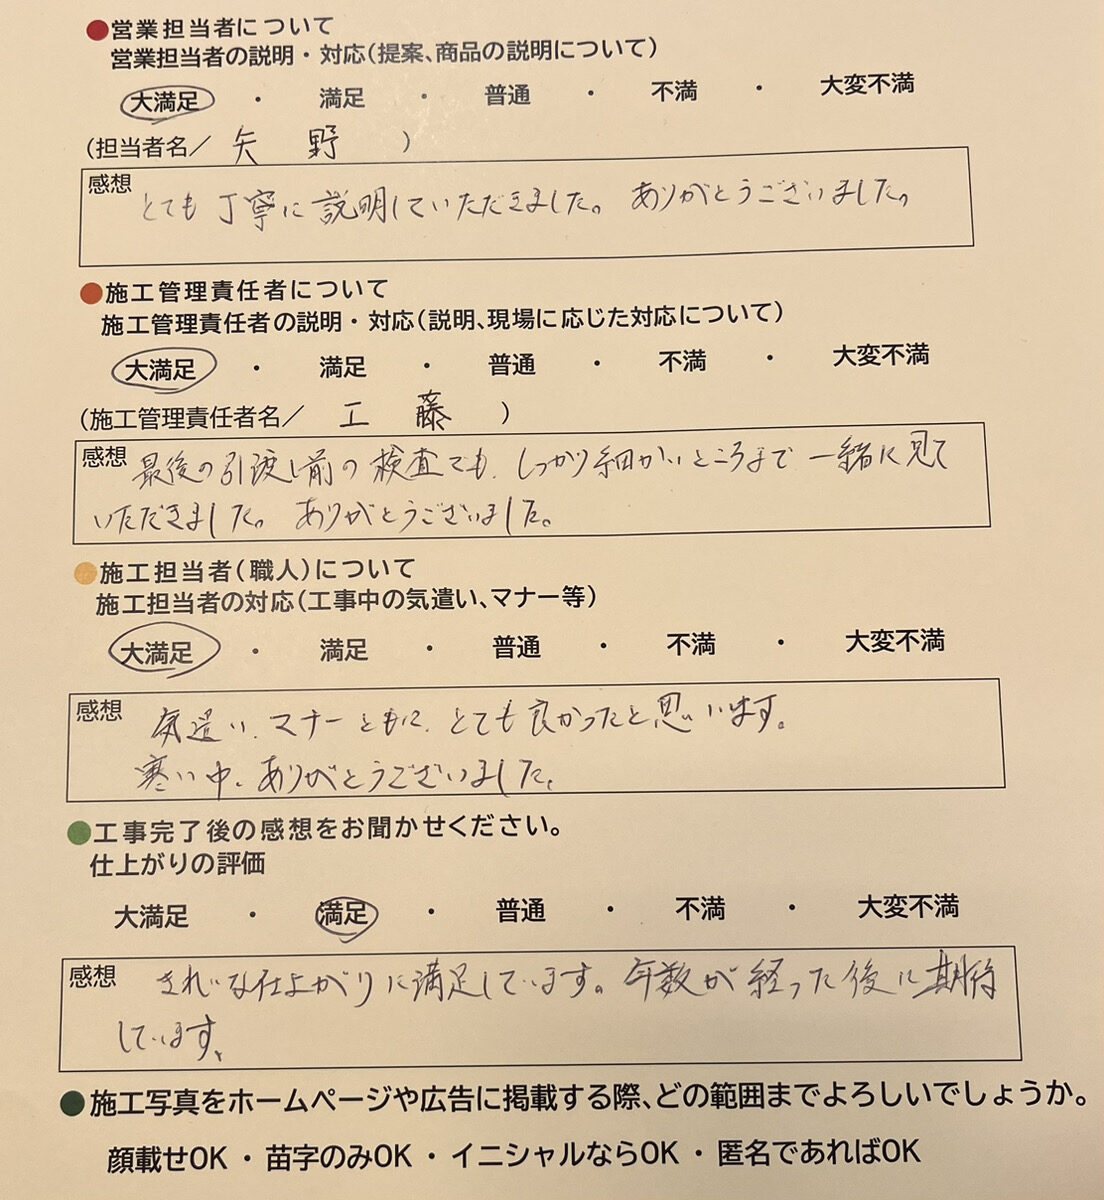 ●営業担当者について
営業担当者の説明・対応(提案、商品の説明について)
大満足 ・ 満足 ・ 普通 ・ 不満 ・ 大変不満
(担当者名／ 矢野 )
感想 とても丁寧に説明していただきました。ありがとうございました。
●施工管理責任者について
施工管理責任者の説明・対応(説明、現場に応じた対応について)
大満足 ・ 満足 ・ 普通 ・ 不満 ・ 大変不満
(施工管理責任者名／ 工藤 )
感想 最後の引渡し前の検査でも、しっかり細かいところまで一緒に見て
いただきました。ありがとうございました。
●施工担当者(職人)について
施工担当者の対応(工事中の気遣い、マナー等)
大満足 ・ 満足 ・ 普通 ・ 不満 ・ 大変不満
感想 気遣い、マナーともに、とても良かったと思います。
寒い中、ありがとうございました。
●工事完了後の感想をお聞かせください。
仕上がりの評価
大満足 ・ 満足 ・ 普通 ・ 不満 ・ 大変不満
感想 きれいな仕上がりに満足しています。年数が経った後に期待
しています。
●施工写真をホームページや広告に掲載する際、どの範囲までよろしいでしょうか。
顔載せOK・苗字のみOK・イニシャルならOK・匿名であればOK